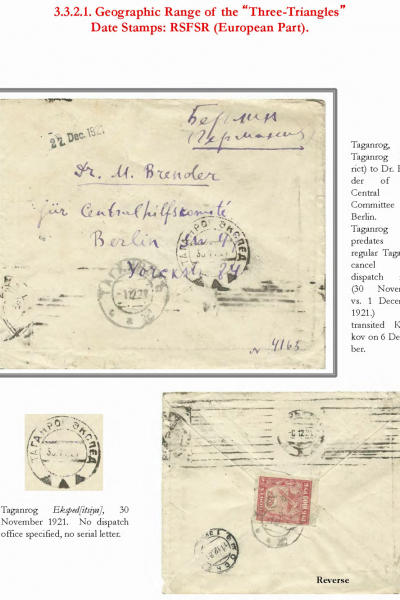 3.3.2.1. Geographic Range of the “Three-Triangles”
Date Stamps: RSFSR (European Part).
Берлин
Германия
22 Dec. 1921
Dr. M. Brender
für Centralhilfskomité
Berlin
Yorckstr 84
ТАГАНРОГ ЭКСПЕД
ТАГАНРОГ
№ 4165
Taganrog,
Taganrog
rict) to Dr.
der of
Central
Committee
Berlin.
Taganrog
predates
regular Tag
cancel
dispatch
(30 Novem
vs. 1 Decem
1921.)
transited K
kov on 6 De
ber.
ТАГАНРОГ ЭКСПЕД
Taganrog Eksped[itsiya], 30
November 1921. No dispatch
office specified, no serial letter.
Reverse